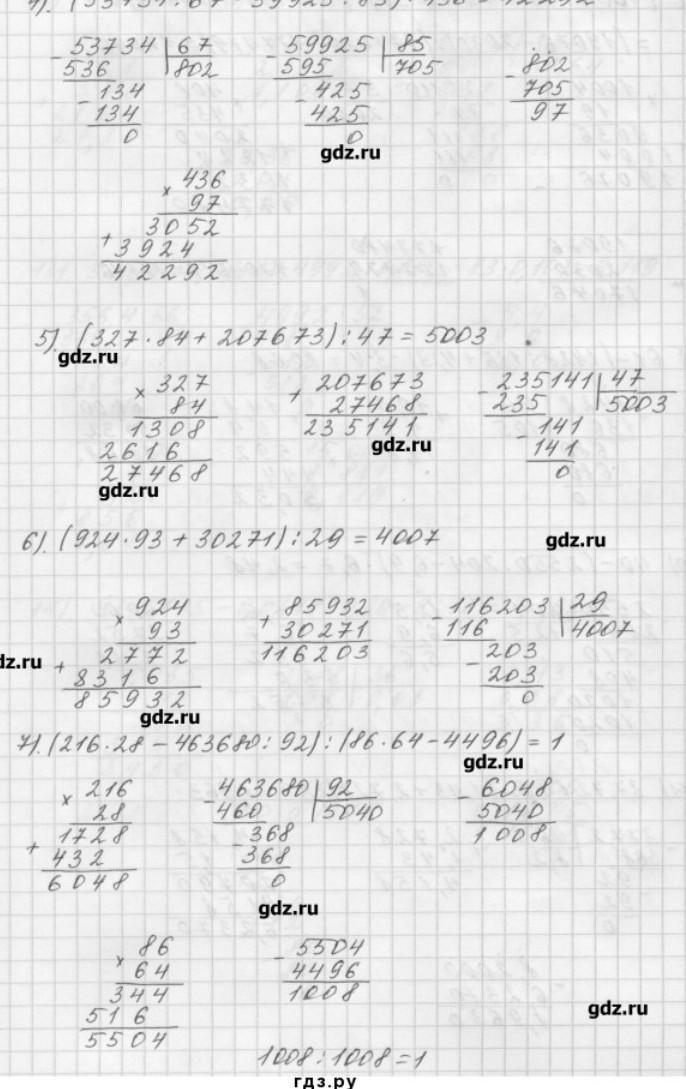 4). (53734 : 67 - 59925 : 85) · 436 = 42292
- 53734 | 67 - 59925 | 85 - 802
536 802 595 705 705
- 134 - 425 97
134 425
0 0
gdz.ru
× 436
97
3052
+ 3924
42292
5). (327 · 84 + 207673) : 47 = 5003
gdz.ru
× 327 + 207673 - 235141 | 47
84 27468 235 5003
1308 235141 - 141
2616 gdz.ru 141
27468 0
gdz.ru
6). (924 · 93 + 30271) : 29 = 4007 gdz.ru
× 924 + 85932 - 116203 | 29
93 30271 116 4007
2772 116203 - 203
dz.ru + 8316 203
85932 0
gdz.ru
7). (216 · 28 - 463680 : 92) : (86 · 64 - 4496) = 1
gdz.ru
× 216 - 463680 | 92 - 6048
28 460 5040 5040
1728 - 368 1008
+ 432 368
6048 0
gdz.ru
× 86 - 5504
64 4496
344 1008
516 gdz.ru
5504
1008 : 1008 = 1
гдз.ру